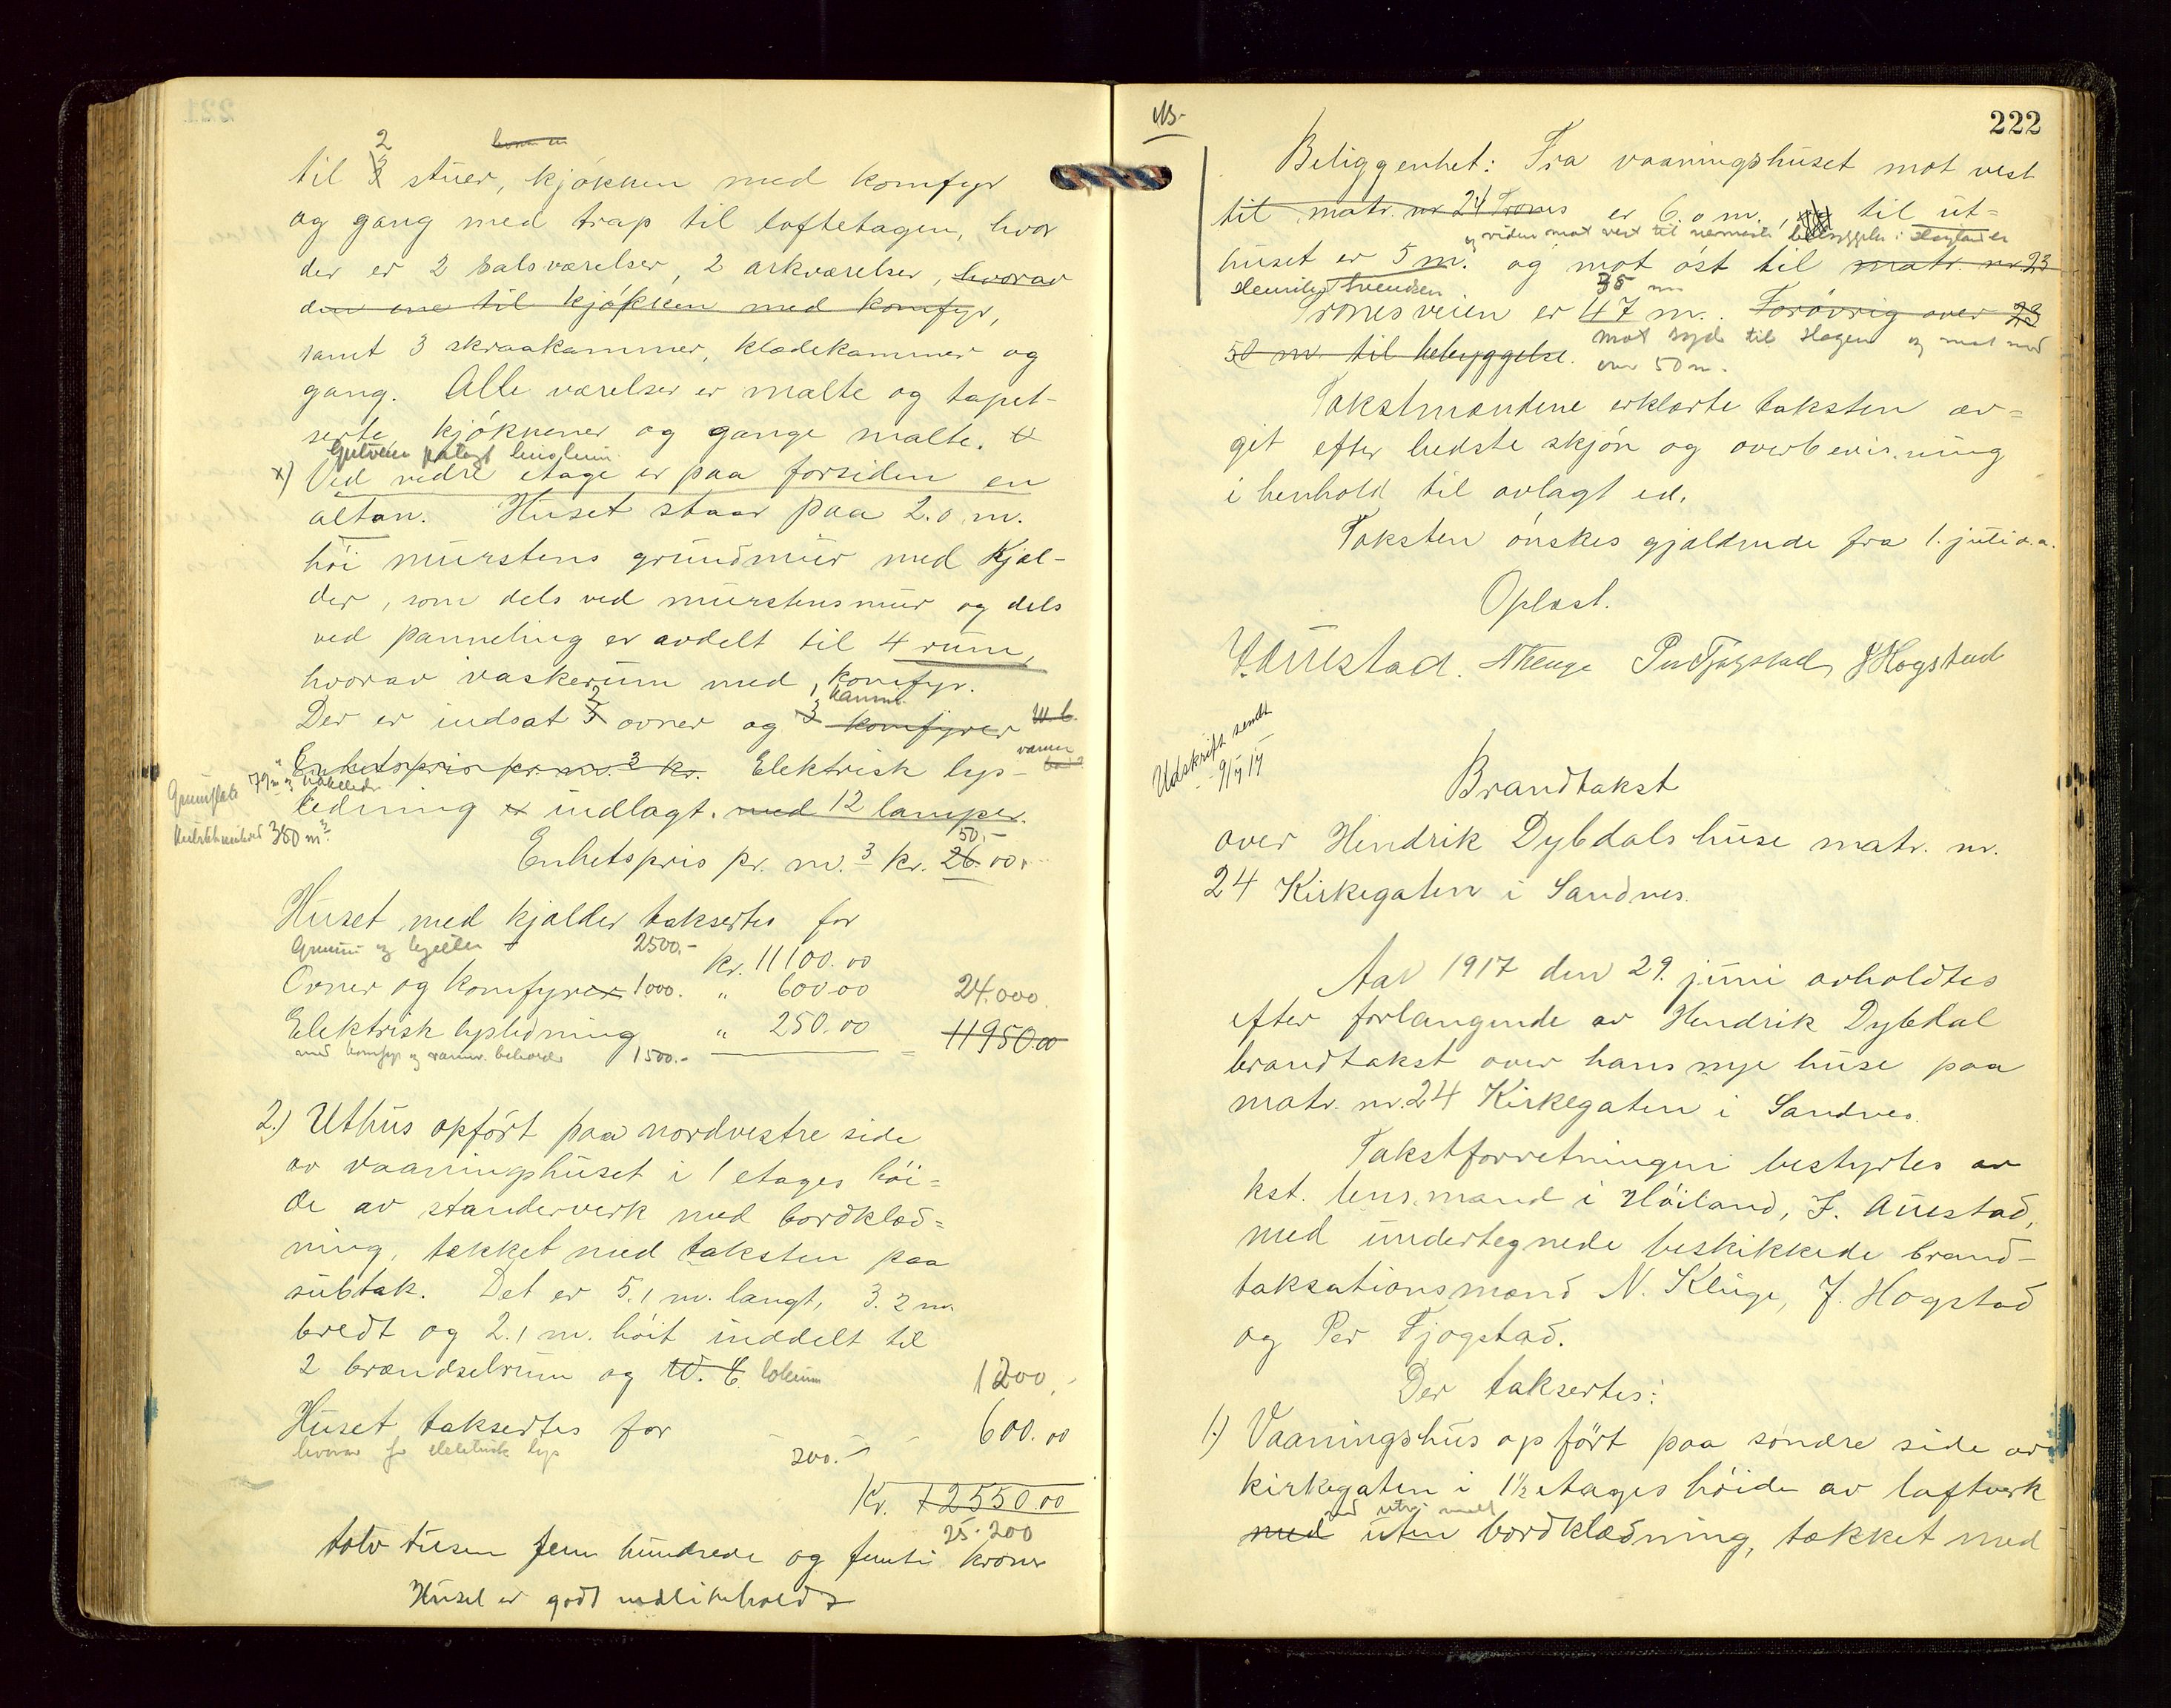 2
til 3 stuer, kjøkken med komfyr
og gang med trap til loftetagen, hvor
der er 2 salsværelser, 2 arkværelser, hvorav
den ene til kjøkken med komfyr,
samt 3 skraakammer, klædekammer og
gang. Alle værelser er malte og tapet-
serte, kjøkkener og gange malte.
Gulvene pålagt linoleum
x) Ved nedre etage er paa forsiden en
altan. Huset staar paa 2.0 m.
høi murstens grundmur med kjel-
der, som dels ved murstensmur og dels
ved panneling er avdelt til 4 rum,
hvorav vaskerum med komfyr.
2 1 kamin
Der er indsat 5 ovner og 3 komfyrer W.C.
Enhetspris pr. m.3 kr. Elektrisk lys-
Grundflate 79 m2
ledning er indlagt. med 12 lamper.
380 m3
50.-
Enhetspris pr. m.3 kr. 26.00.
Huset med kjælder takseres for
Grund og kjeller 2500.- kr. 11100.00
Ovner og komfyrer 1000. " 600.00 24.000.
Elektrisk lysledning " 250.00 = 11950.00
med komfyr og varmv. beholder 1500.-
2.) Uthus opført paa nordvestre side
av vaaningshuset i 1 etages høi=
de av standerverk med bordklæd=
ning, tækket med taksten paa
subtak. Det er 5.1 m. langt, 3.2 m.
bredt og 2.1 m. høit inddelt til
2 brændselrum og W.C. 1200.-
Huset takseres for 600.00
hvorav for elektrisk lys 200.-
Kr. 12550.00
25.200
tolv tusen fem hundrede og femti kroner
Huset er godt vedlikeholdt
NB.
222
Beliggenhet: Fra vaaningshuset mot vest
til matr. nr 24 Trones er 6.0 m., til ut=
og videre mot vest til nærmeste bebyggelse
huset er 5 m. og mot øst til matr. nr. 23
35 m
Tronesveien er 47 m. Forøvrig over 23
mot syd til Hagen og mot nord
50 m. til bebyggelse. over 50 m.
Takstmændene erklærte taksten av=
git efter bedste skjøn og overbevisning
i henhold til avlagt ed.
Taksten ønskes gjældende fra 1. juli d.a.
Oplæst.
J. Auestad. N Kluge Per Fjogstad J Hogstad
Udskrift sendt
9/7 17
Brandtakst
over Hendrik Dybdals huse matr. nr.
24 Kirkegaten i Sandnes.
Aar 1917 den 29. juni avholdtes
efter forlangende av Hendrik Dybdal
brandtakst over hans nye huse paa
matr. nr. 24 Kirkegaten i Sandnes.
Takstforretningen bestyrtes av
kst. lensmand i Høiland, J. Auestad,
med undertegnede beskikkede brand-
taksationsmænd N. Kluge, J. Hogstad
og Per Fjogstad.
Der taksertes:
1.) Vaaningshus opført paa søndre side av
kirkegaten i 1½ etages høide av laftverk
med utv.
med uten bordklædning, tækket med